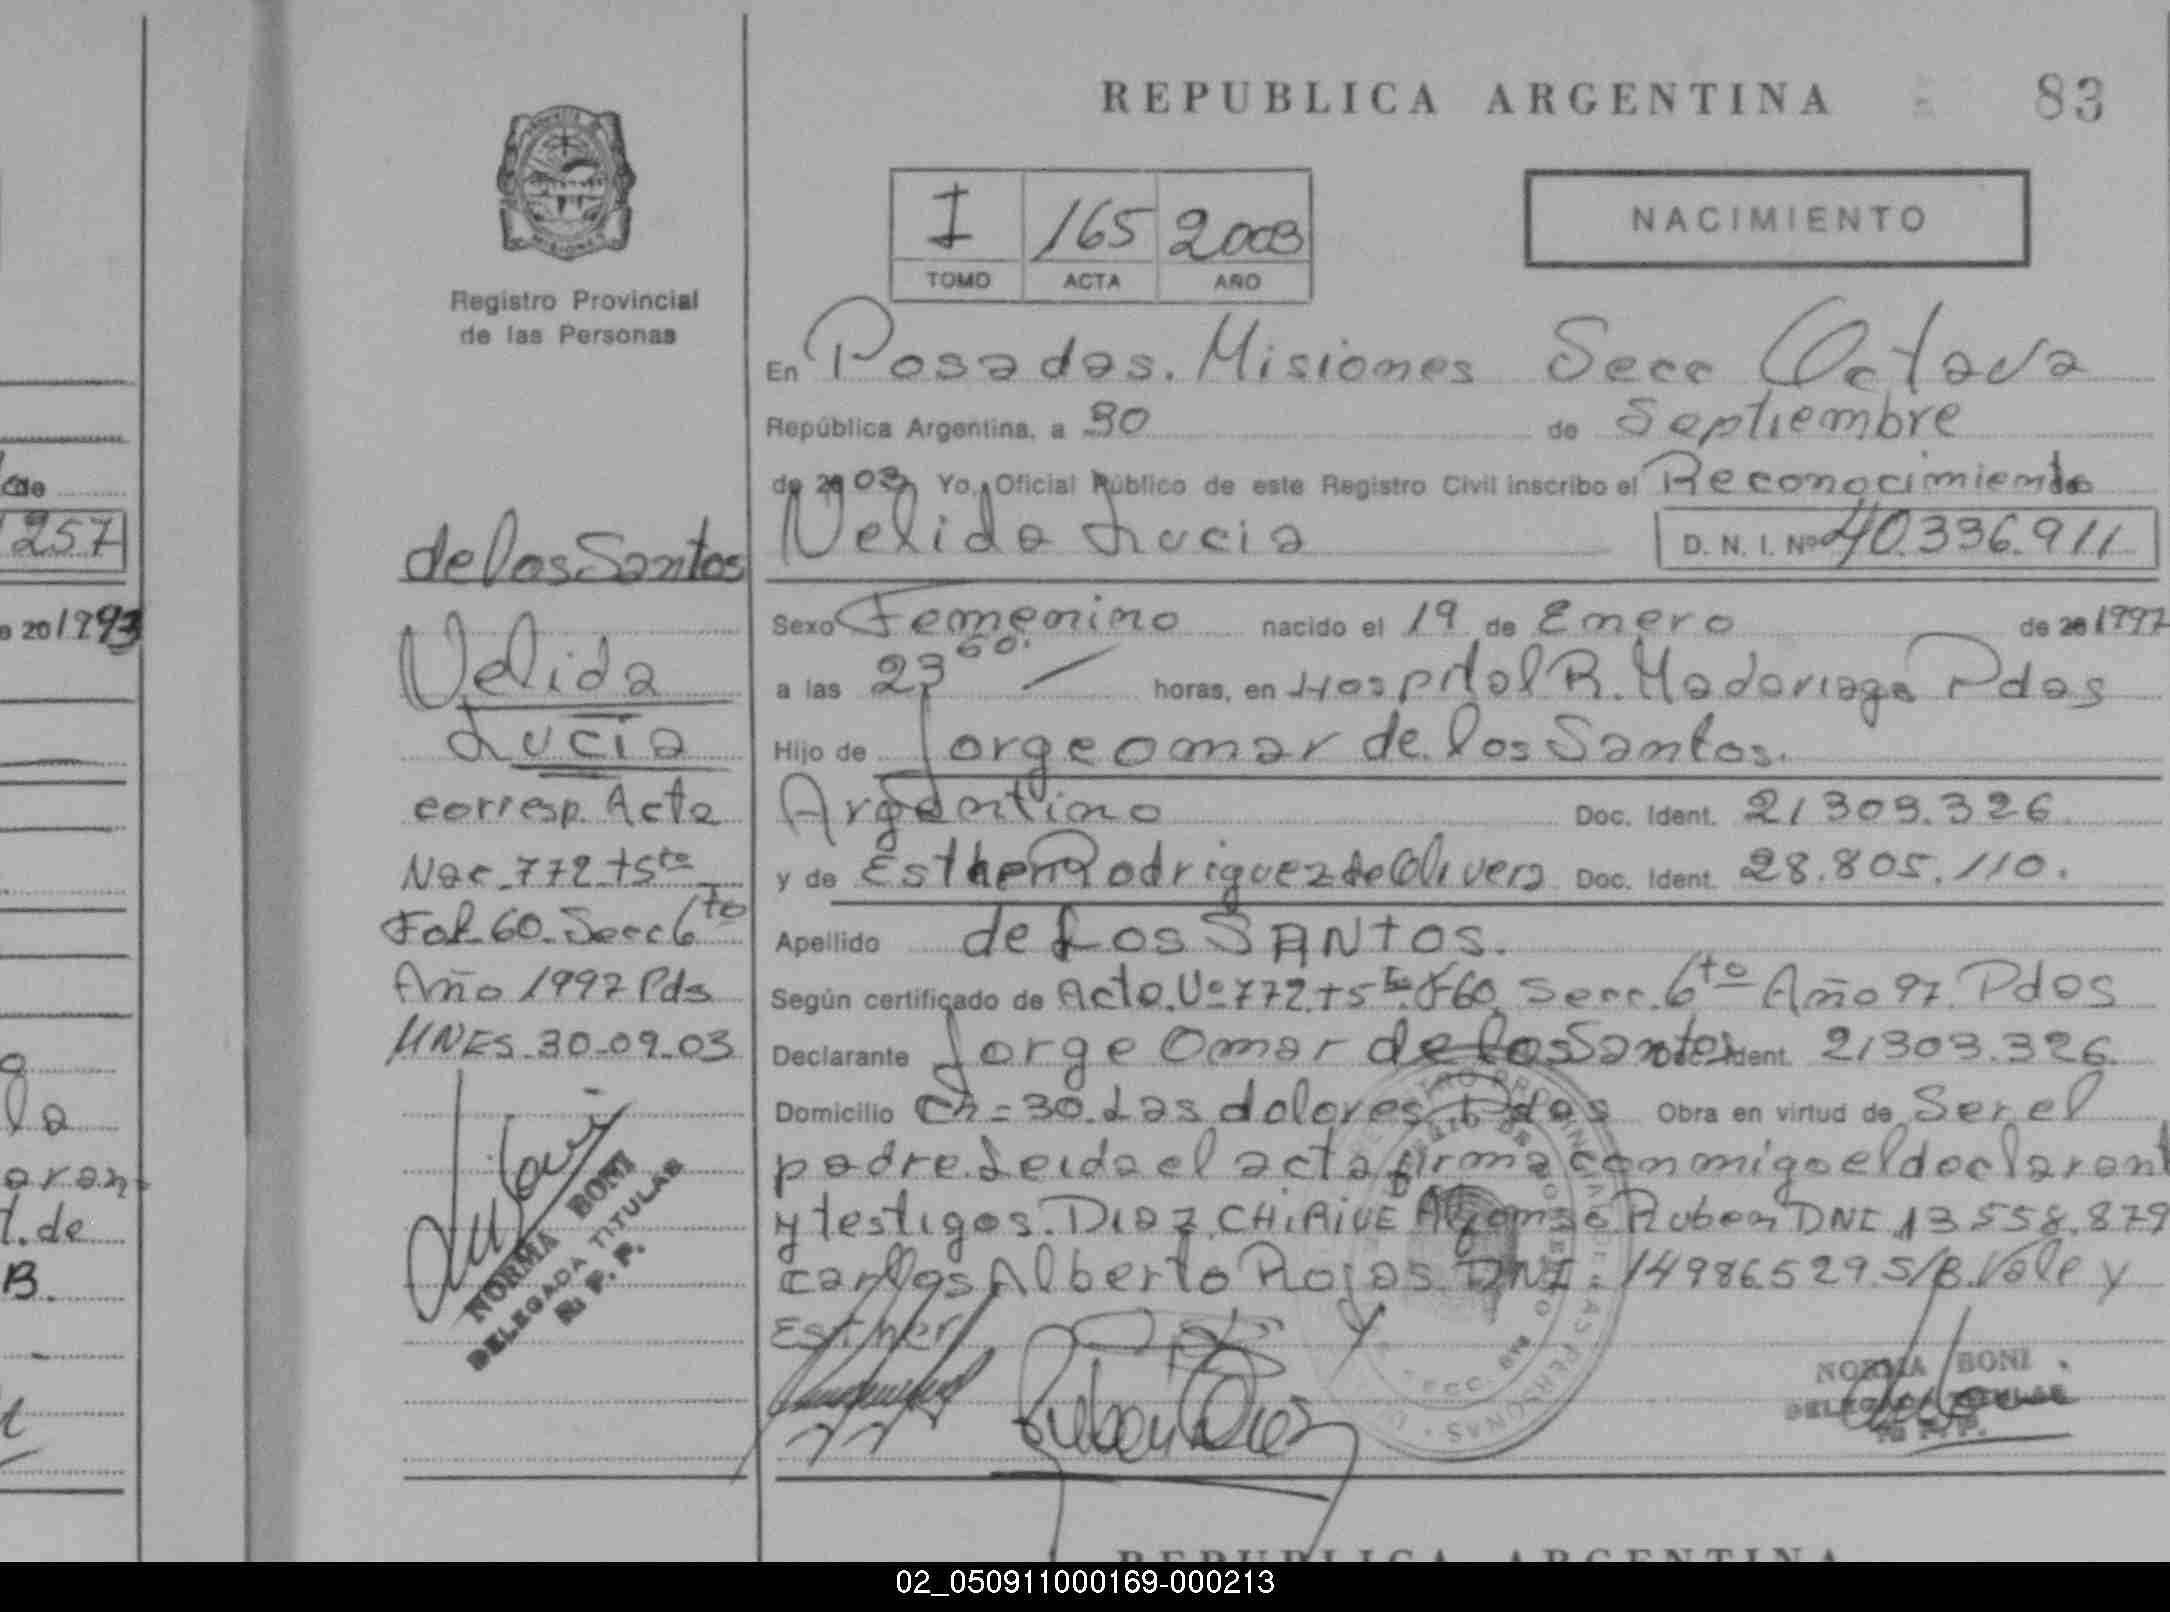 REPUBLICA ARGENTINA 83
I 165 2003
TOMO ACTA AÑO
NACIMIENTO
Registro Provincial
de las Personas
En Posadas. Misiones Secc Octava
República Argentina, a 30 de Septiembre
de 2003 Yo, Oficial Público de este Registro Civil inscribo el Reconocimiento
Nelida Lucia D. N. I. Nº 40.336.911
Sexo Femenino nacido el 19 de Enero de 1997
a las 23 horas, en Hospital R. Madariaga Pdas
Hijo de Jorge Omar de los Santos.
Argentino Doc. Ident. 21303.326
y de Esther Rodriguez de Olivera Doc. Ident. 28.805.110.
Apellido de Los SANtos.
Según certificado de Acta Nº 772 t 5to F60 Secc. 6to Año 97. Pdas
Declarante Jorge Omar de los Santos Doc. Ident. 21303.326.
Domicilio Ch=30. Las dolores Pdas Obra en virtud de Ser el
padre. Leida el acta firma conmigo el declarant
y testigos. Diaz, CHiRiVE Ruben DNI 13558.879
Carlos Alberto Rojas DNI: 14986529 S/B. Vale y
Esther
Ruben Diaz
NORMA BONI
DELEGADA TITULAR
R. P. P.
de los Santos
Nelida
Lucia
corresp. Acta
Nac. 772 t 5to
Fol. 60. Secc 6to
Año 1997 Pds
MNES. 30-09-03
NORMA BONI
DELEGADA TITULAR
R. P. P.
257
20 1993
la
aran
de
B.
REPUBLICA ARGENTINA
02_050911000169-000213